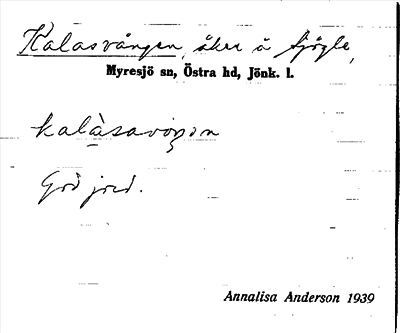 Kalasvången, åker å Fjögle,
Myresjö sn, Östra hd, Jönk. l.
kalàsavoŋən
God jord.
Annalisa Anderson 1939